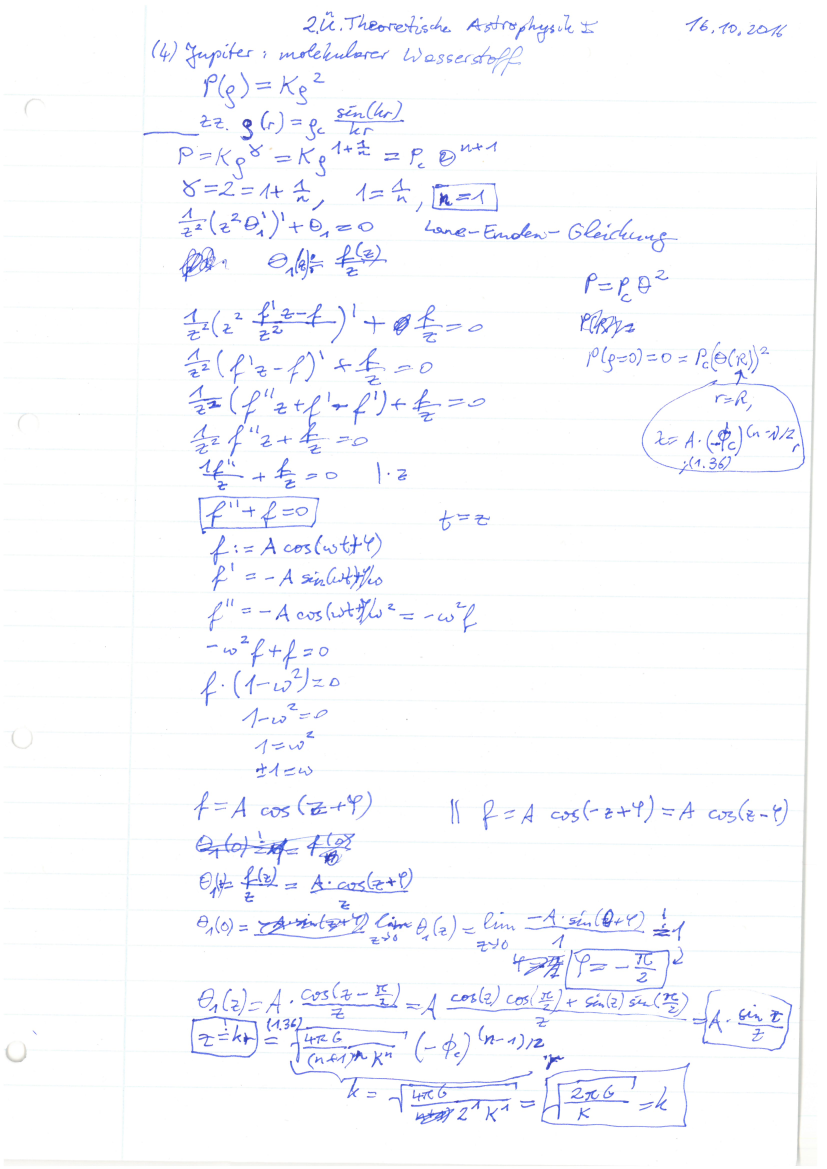 2.Ü. Theoretische Astrophysik I 16.10.2016
(4) Jupiter: molekularer Wasserstoff
P(ρ) = Kρ²
zz. ρ(r) = ρ_c sin(kr)/kr
P = Kρ^γ = Kρ^(1+1/n) = P_c Θ^(n+1)
γ = 2 = 1 + 1/n, 1 = 1/n, n = 1
1/z² (z² Θ₁')' + Θ₁ = 0 Lane-Emden-Gleichung
Θ₁(z) := f(z)/z
P = P_c Θ²
1/z² (z² (f'z-f)/z²)' + f/z = 0
P(ρ=0) = 0 = P_c (Θ(R))²
1/z² (f'z-f)' + f/z = 0
r = R,
1/z² (f''z + f' - f') + f/z = 0
z = A·(-Φ_c)^((n-1)/2) r
; (1.36)
1/z² f''z + f/z = 0
1f''/z + f/z = 0 | · z
f'' + f = 0 t = z
f := A cos(ωt+φ)
f' = -A sin(ωt+φ)ω
f'' = -A cos(ωt+φ)ω² = -ω²f
-ω²f + f = 0
f · (1-ω²) = 0
1-ω² = 0
1 = ω²
±1 = ω
f = A cos(z+φ) || f = A cos(-z+φ) = A cos(z-φ)
Θ₁(z) = f(z)/z = A·cos(z+φ)/z
Θ₁(0) = lim_(z→0) Θ₁(z) = lim_(z→0) -A·sin(0+φ)/1 =! 1
φ = -π/2
Θ₁(z) = A · cos(z-π/2)/z = A (cos(z) cos(π/2) + sin(z) sin(π/2))/z = A · sin z/z
z =! kr =(1.36) √(4πG/((n+1)^n K^n)) (-Φ_c)^((n-1)/2) · r
k = √(4πG/(2¹ K¹)) = √(2πG/K) = k